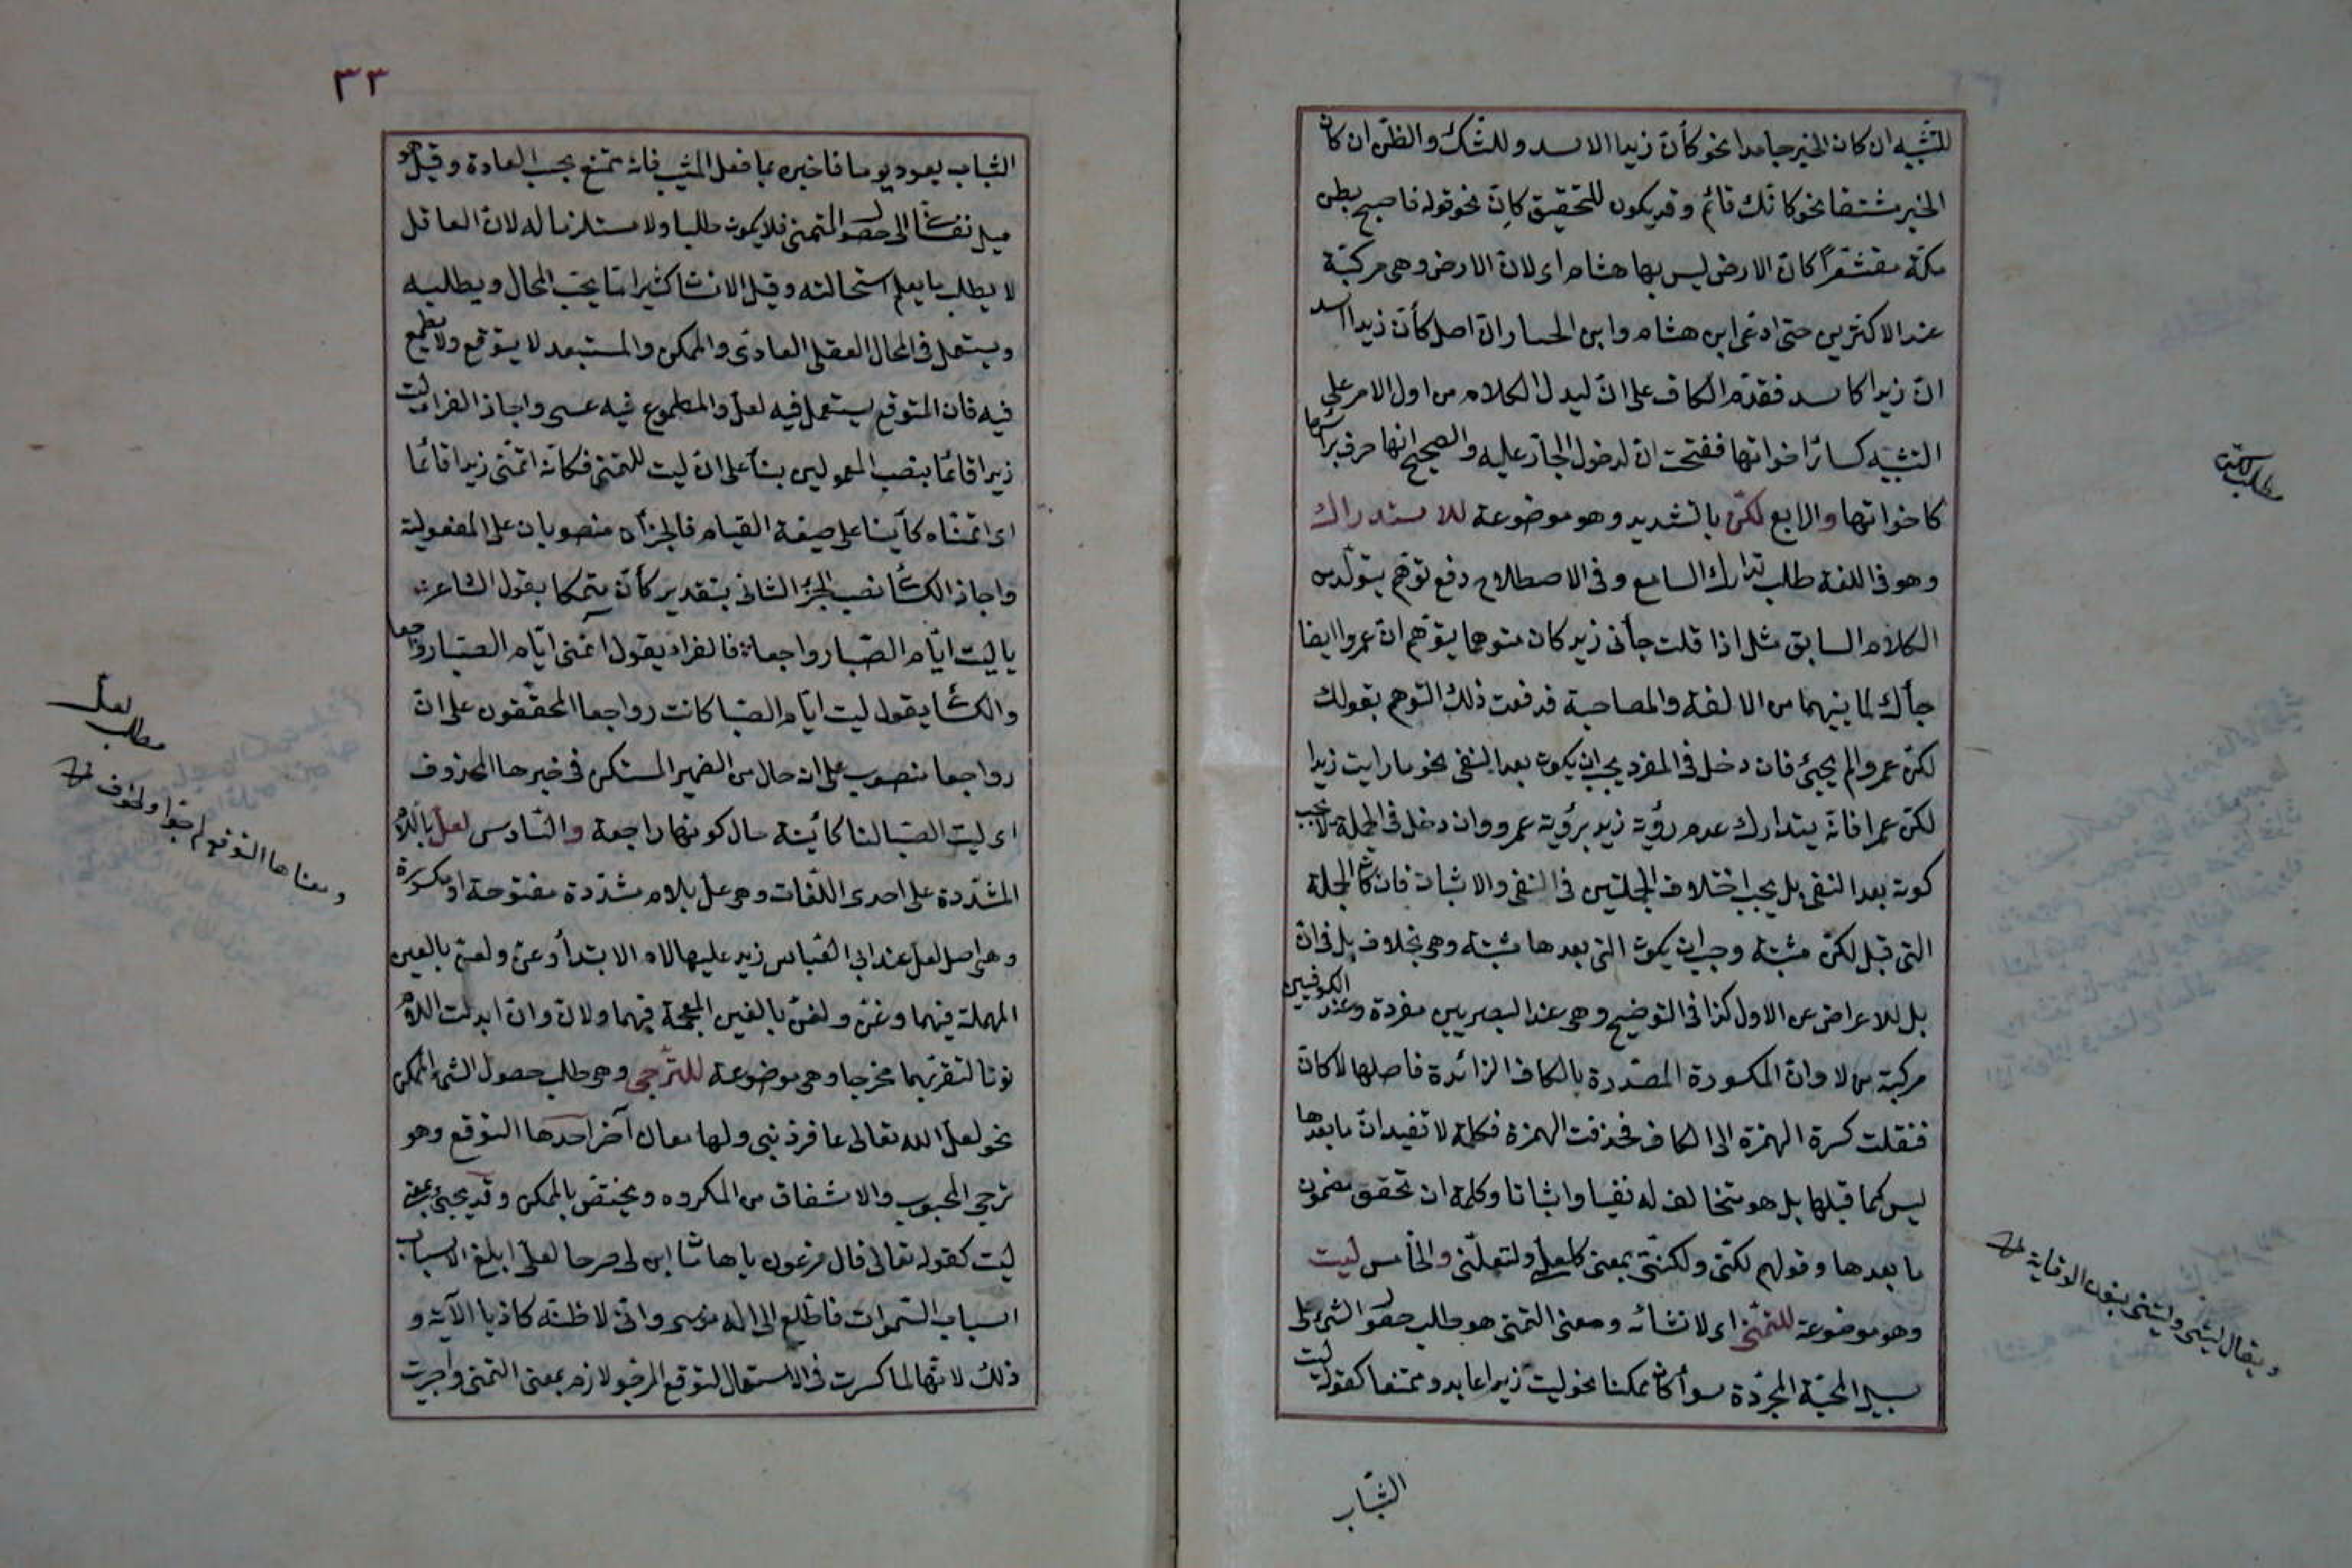 للتشبيه ان كان الخبر جامدا نحو كأن زيدا الاسد وللشك والظن ان كان
الخبر مشتقا نحو كانك قائم وقد يكون للتحقيق كان نحو قوله فاصبح بطن
مكة مقشعرا كان الارض ليس بها هشام اى لان الارض وهى مركبة
عند الاكثرين حتى ادعى ابن هشام وابن الخباز ان اصل كأن زيدا اسد
ان زيدا كاسد فقدم الكاف على ان ليدل الكلام من اول الامر على
التشبيه كسائر اخواتها ففتحت ان لدخول الجار عليه والصحيح انها حرف براسها
كاخواتها والرابع لكن بالتشديد وهو موضوعة للاستدراك
وهو فى اللغة طلب تدارك السامع وفى الاصطلاح دفع توهم يتولد من
الكلام السابق مثل اذا قلت جأنى زيد كان متوهما يتوهم ان عمروا ايضا
جأك لما بينهما من الالفة والمصاحبة فدفعت ذلك التوهم بقولك
لكن عمروا لم يجئ فان دخل فى المفرد يجب ان يكون بعد النفى نحو ما رايت زيدا
لكن عمرا فانه يتدارك عدم رؤية زيد برؤية عمرو وان دخل فى الجملة لا يجب
كونه بعد النفى بل يجب اختلاف الجملتين فى النفى والاثبات فان كان الجملة
التى قبل لكن مثبتة وجب ان يكون التى بعدها مثبتة وهى بخلاف بل فان
بل للاعراض عن الاول كذا فى التوضيح وهى عند البصريين مفردة وعند الكوفيين
مركبة من لا وان المكسورة المصدرة بالكاف الزائدة فاصلها لا كان
فنقلت كسرة الهمزة الى الكاف فحذفت الهمزة فكلمة لا تفيد ان ما بعدها
ليس كما قبلها بل هو متخالف له نفيا واثباتا وكلمة ان تحقق مضمون
ما بعدها وقولهم لكنى ولكننى بمعنى كلعلى ولتعلنى والخامس ليت
وهو موضوعة للتمنى اى لانشائه ومعنى التمنى هو طلب حصول الشئ على
سبيل المحبة المجردة سوأ كان ممكنا نحو ليت زيدا عابد وممتنعا كقوله ليت
الشباب
ويقال ليتى وليتنى بنون الوقاية
٣٣
الشباب يعود يوما فاخبره بما فعل المشيب فانه ممتنع بحسب العادة وقيل هو
ميل نفسانى الى حصول المتمنى فلا يكون طلبا ولا مستلزما له لان العاقل
لا يطلب ما يعلم استحالته وقيل الانسان كثيرا ما يحب المحال ويطلبه
ويستعمل فى المحال العقلى العادى والممكن والمستبعد لا يتوقع ولا يطمع
فيه فان المتوقع يستعمل فيه لعل والمطموع فيه عسى واجاز الفرا ليت
زيدا قائما بنصب المعمولين بنأ على ان ليت للتمنى فكانه اتمنى زيدا قائما
اى اتمناه كأينا على صفة القيام فالجزأن منصوبان على المفعولية
واجاز الكسائى نصب الجزء الثانى بتقدير كان متمسكا بقول الشاعر
يا ليت ايام الصبا رواجعا فالفراء يقول اتمنى ايام الصبا رواجعا
والكسائى يقول ليت ايام الصبا كانت رواجعا المحققون على ان
رواجعا منصوب على انه حال من الضمير المستكن فى خبرها المحذوف
اى ليت الصبا لنا كأينة حال كونها راجعة والسادس لعل باللام
المشددة على احدى اللغات وهى عل بلام مشددة مفتوحة او مكسورة
وهى اصل لعل عند ابى العباس زيد عليها لام الابتدأ وعن ولعن بالعين
المهملة فيهما وغن ولغن بالغين المعجمة فيهما ولان وان ابدلت اللام
نونا لتقربهما مخرجا وهى موضوعة للترجى وهى طلب حصول الشئ الممكن
نحو لعل الله تعالى غافر ذنبى ولها معان آخر احدها التوقع وهو
ترجى المحبوب والاشفاق من المكروه ويختص بالممكن وقد يجئ بمعنى
ليت كقوله تعالى قال فرعون يا هامان ابن لى صرحا لعلى ابلغ الاسباب
اسباب السموات فاطلع الى اله موسى وانى لاظنه كاذبا الآية و
ذلك لانها لما كسرت فى الاستعمال لتوقع المرجو لازم بمعنى التمنى واجريت
مطلب لعل
ومعناها التوقع لمرجو او لمخوف